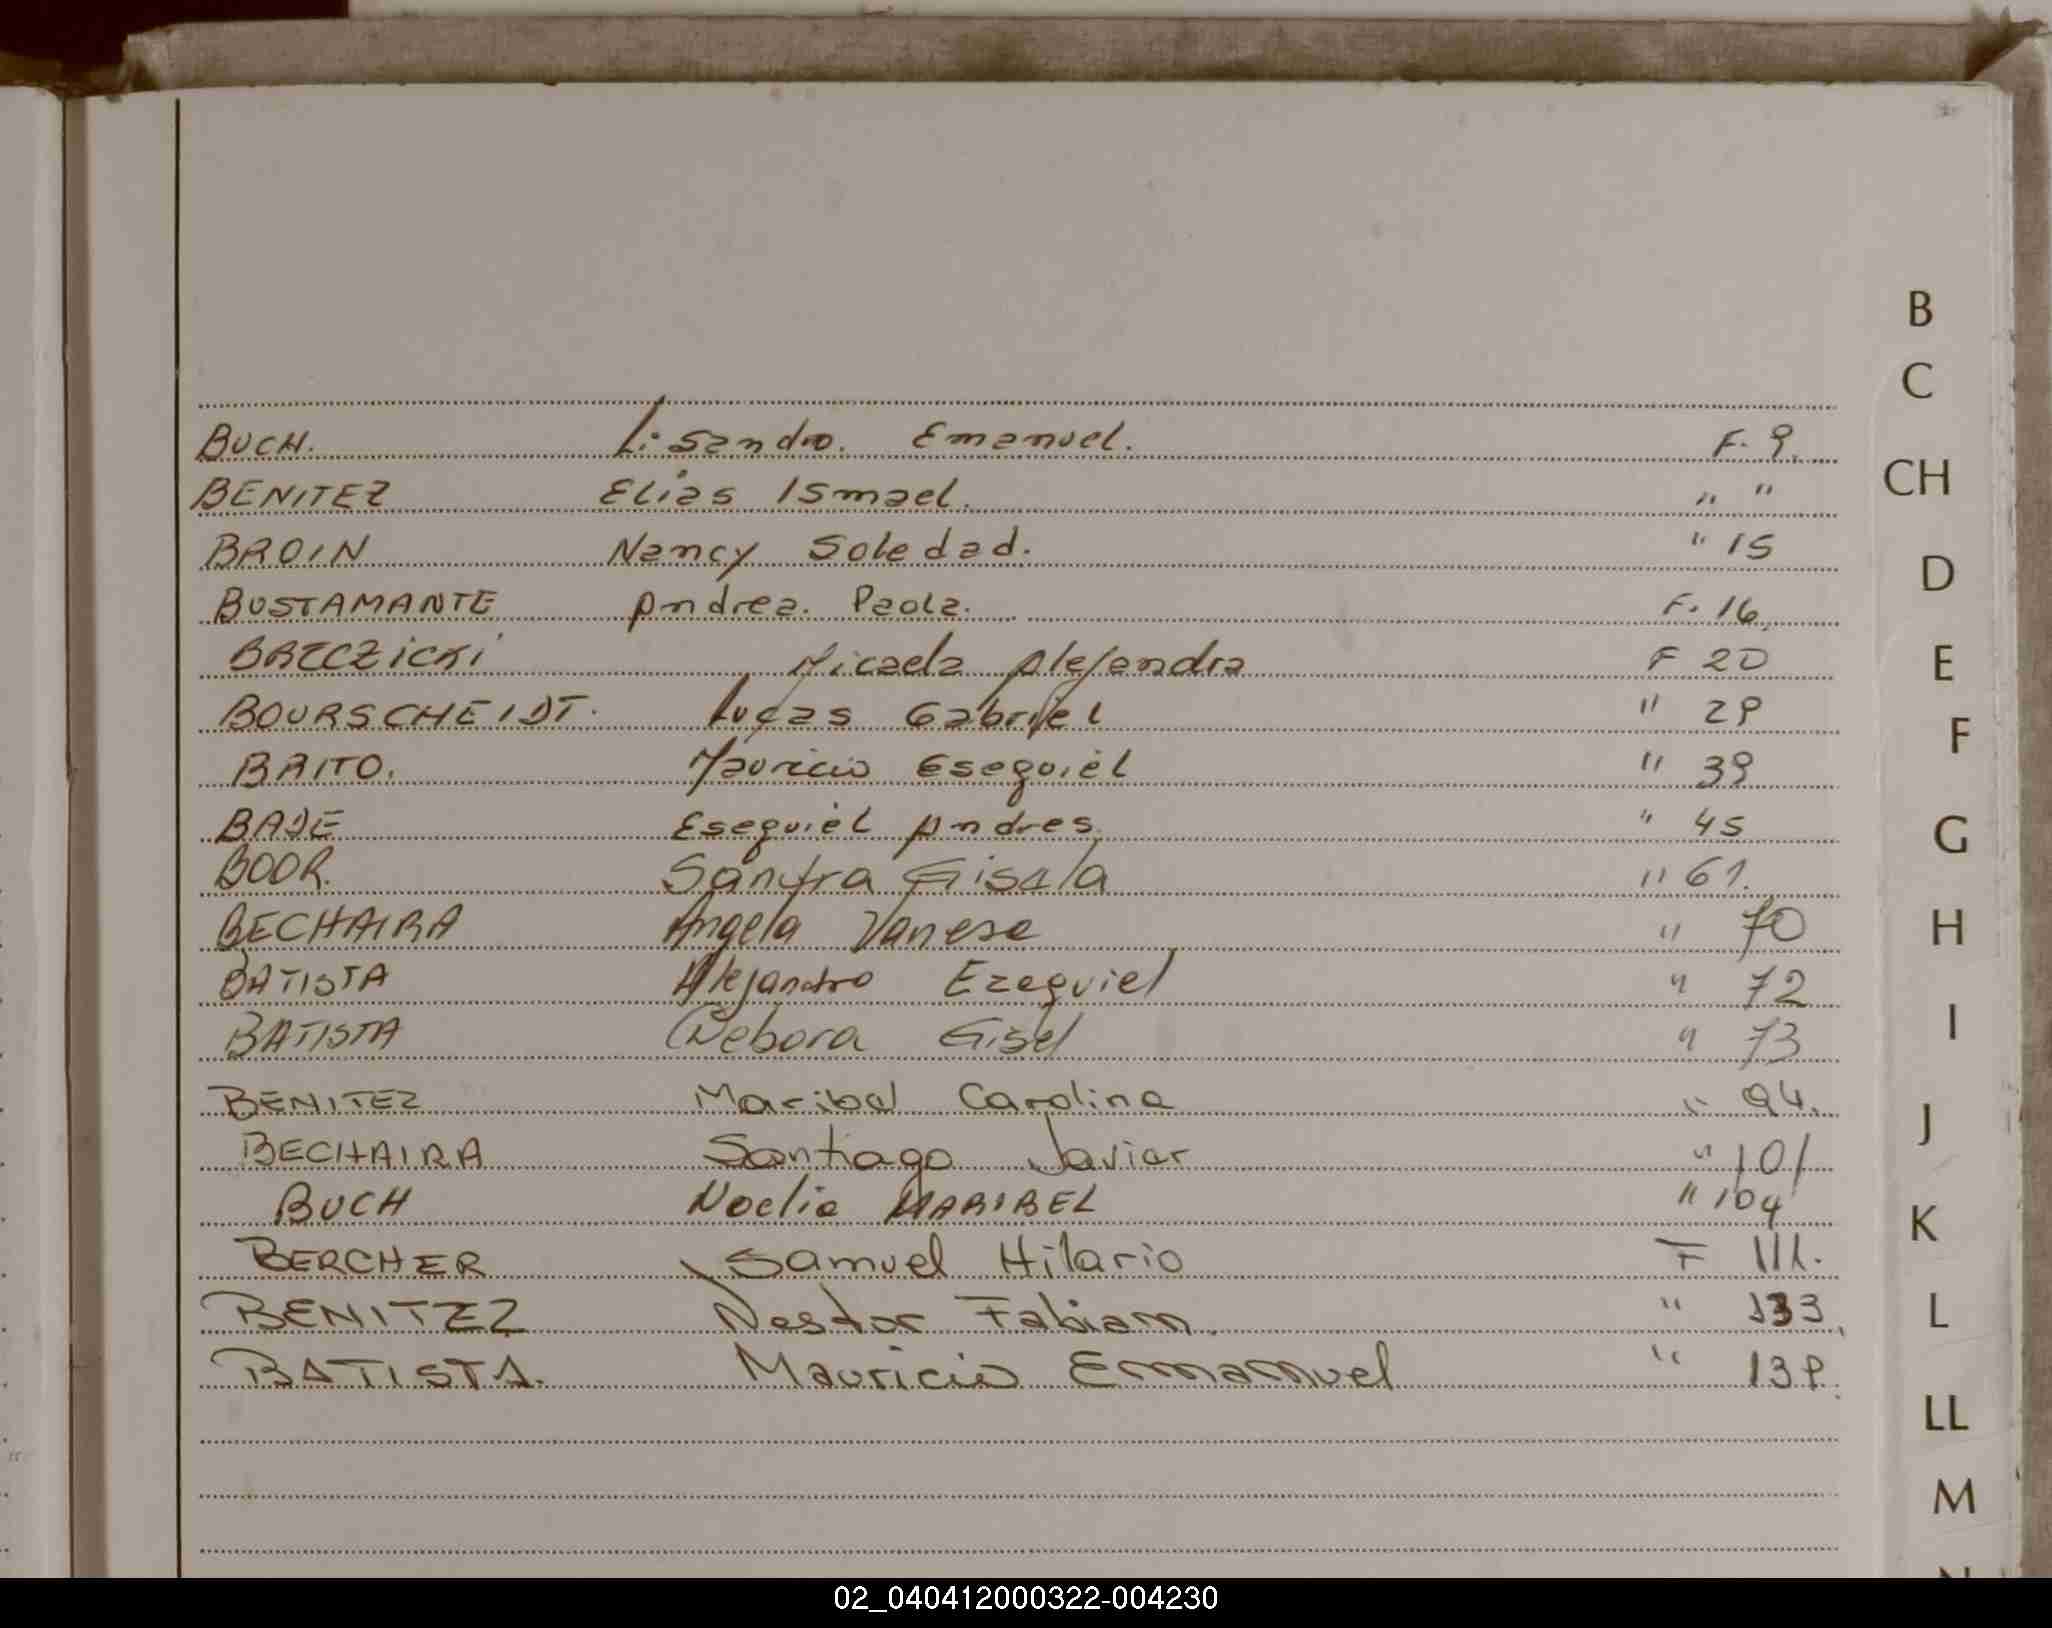 BUCH. Lisandro. Emanuel. F. 9.
BENITEZ Elias Ismael. " "
BROIN Nancy Soledad. " 15
BUSTAMANTE Andrea. Paola. F. 16.
Micaela Alejandra F 20
BOURSCHEIDT. Lucas Gabriel " 29
BRITO. Mauricio Esequiel " 39
BADE Esequiel Andres " 45
BOOR. Sandra Gisela " 61.
BECHAIRA Angela Vanesa " 70
BATISTA Alejandro Ezequiel " 72
BATISTA Debora Gisel " 73
BENITEZ Maribel Carolina " 94.
BECHAIRA Santiago Javier " 101
BUCH Noelia MARIBEL " 104
BERCHER Samuel Hilario F 111.
BENITEZ Nestor Fabian. " 133.
BATISTA. Mauricio Emanuel " 139.
B
C
CH
D
E
F
G
H
I
J
K
L
LL
M
02_040412000322-004230